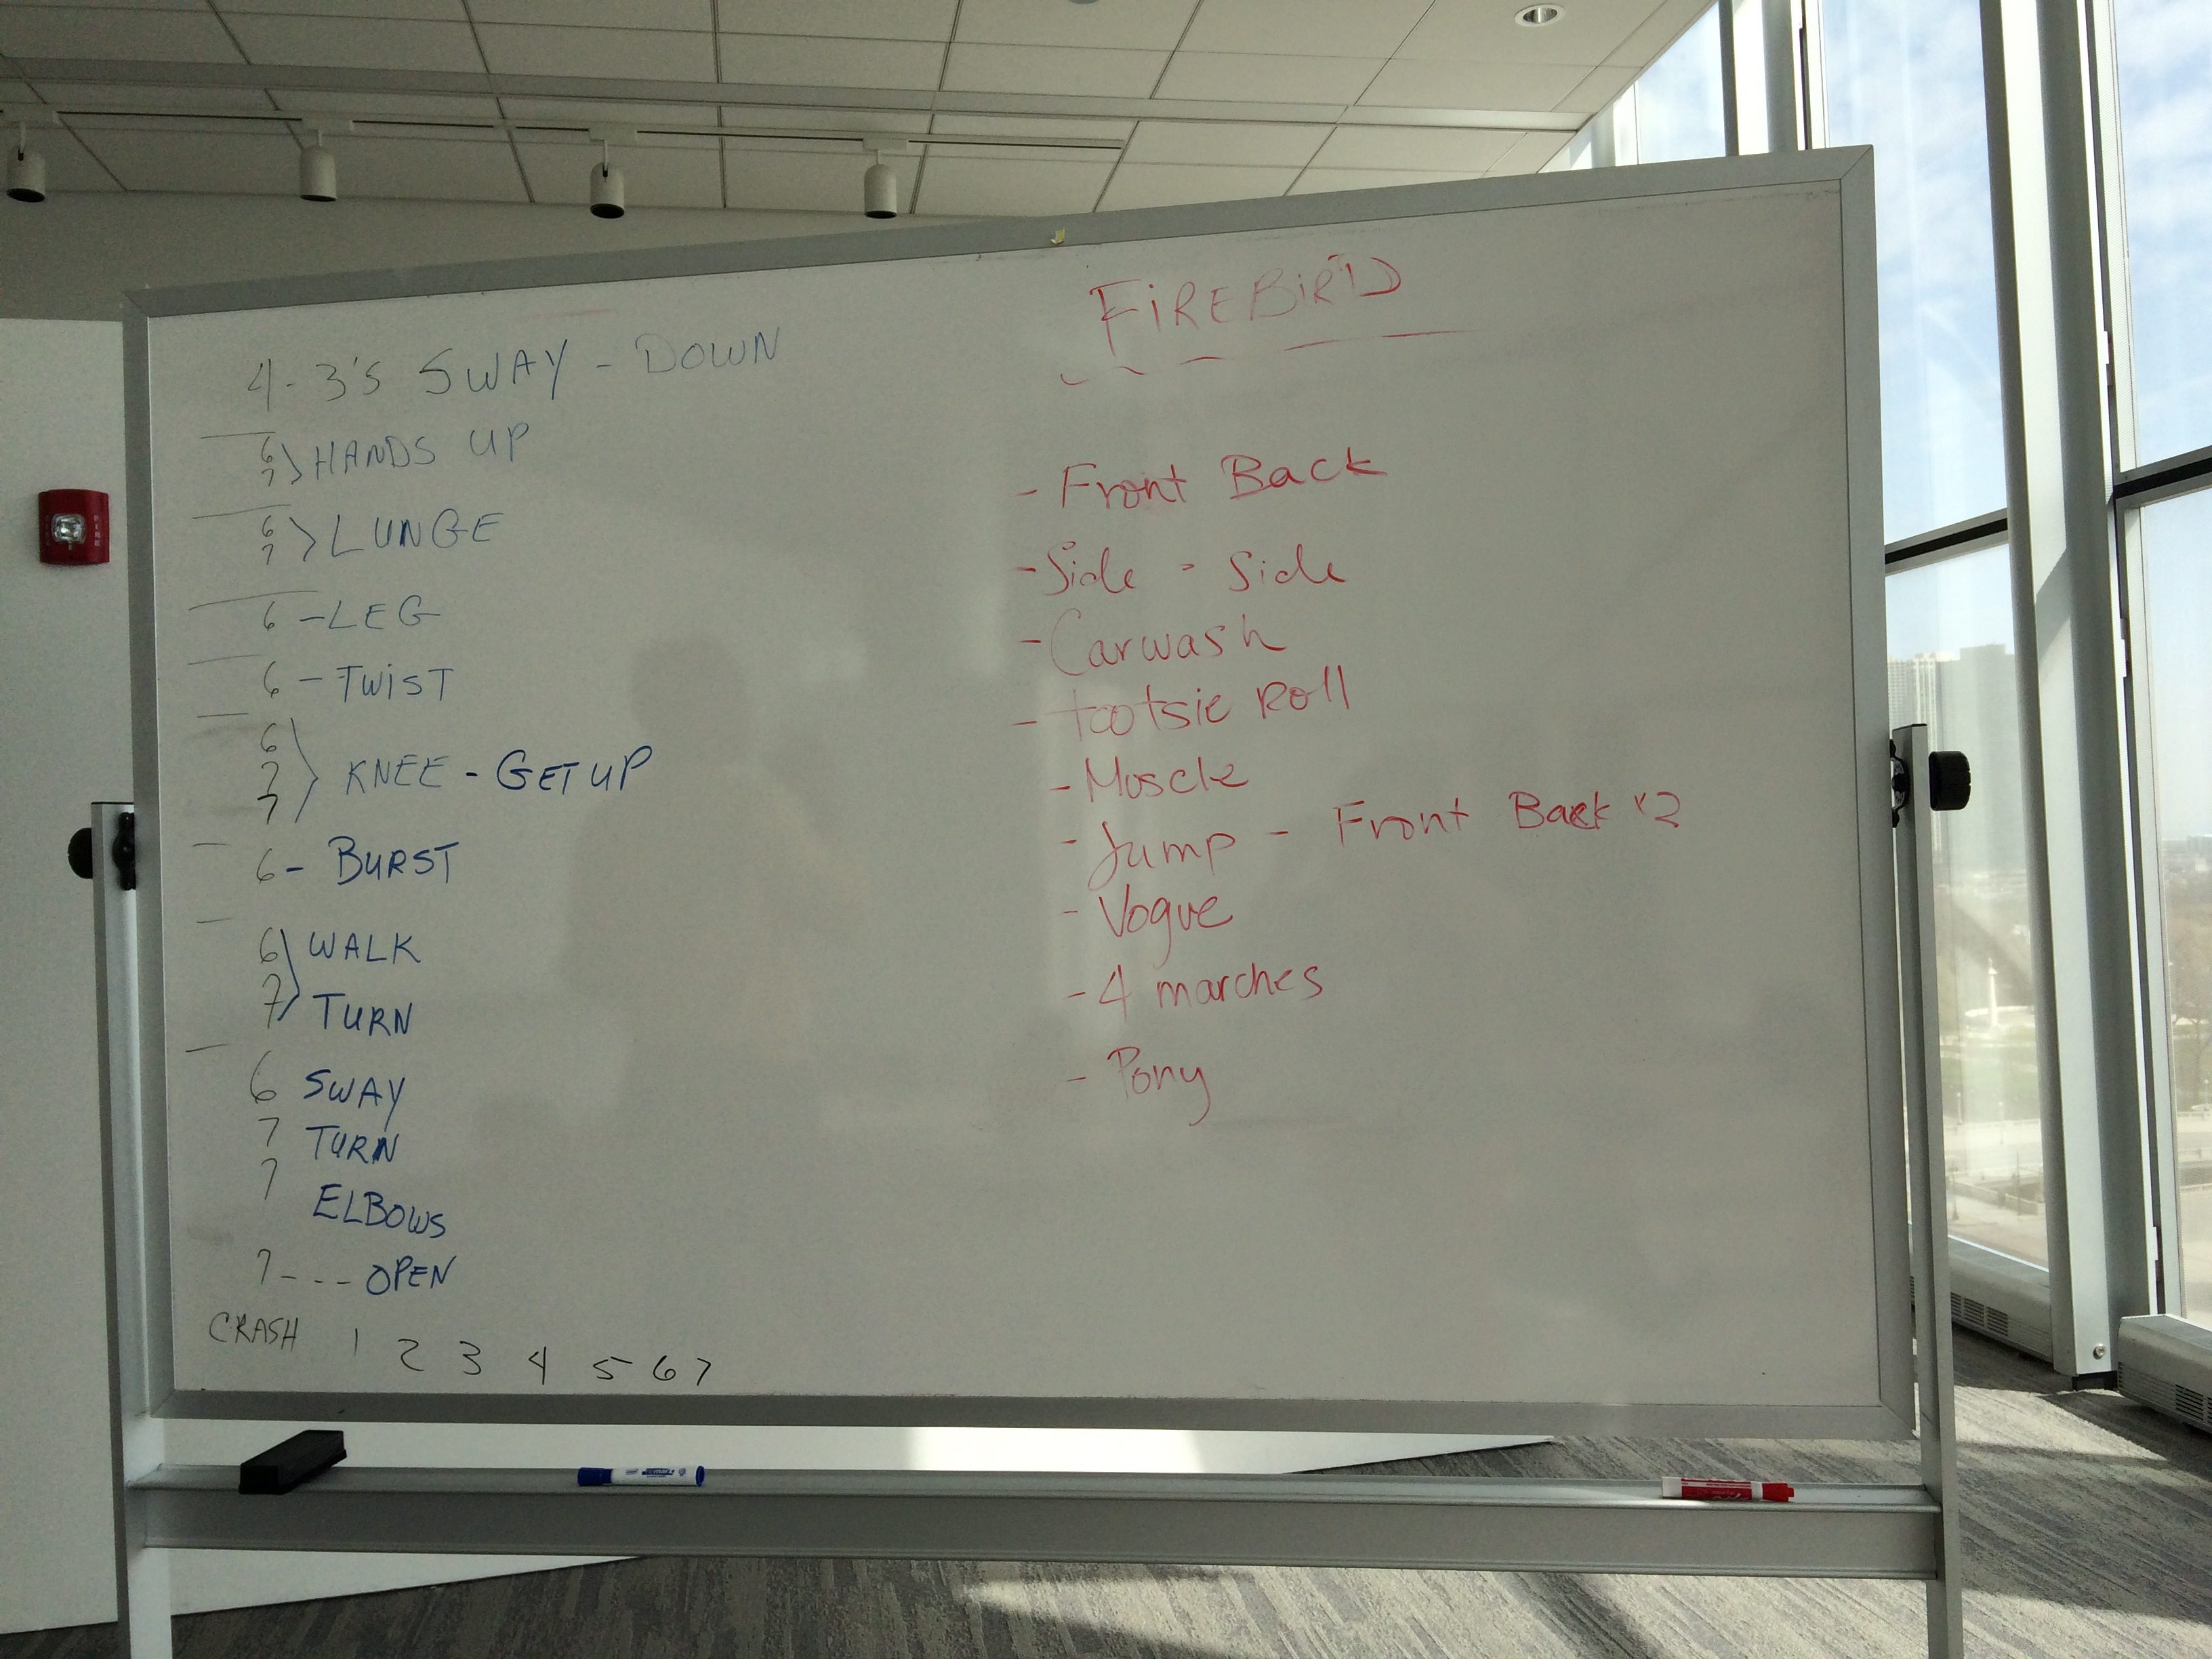 4-3's SWAY - DOWN
6
7 HANDS UP
6
7 LUNGE
6 - LEG
6 - TWIST
6
7 KNEE - GET UP
7
6 - BURST
6 WALK
7 TURN
6 SWAY
7 TURN
7 ELBOWS
7 - - - OPEN
CRASH 1 2 3 4 5 6 7
FIREBIRD
- Front Back
- Side - Side
- Carwash
- tootsie Roll
- Muscle
- Jump - Front Back x2
- Vogue
- 4 marches
- Pony
FIRE